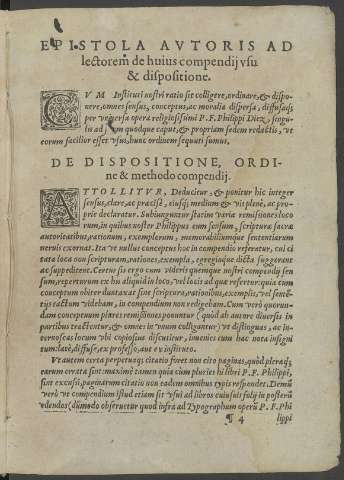 EPISTOLA AVTORIS AD
lectorem de huius compendij vsu
& dispositione.
CVM Instituti nostri ratio sit colligere, ordinare, & dispo-
nere, omnes sensus, conceptus, ac moralia dispersa, diffusaq;
per vniuersa opera religiosissimi P. F. Philippi Diez, singu-
lis ad suum quodque caput, & propriam sedem redactis, vt
eorum facilior esset vsus, hunc ordinem sequuti sumus.
DE DISPOSITIONE, ORDI-
ne & methodo compendij.
ATTOLLITVR, Deducitur, & ponitur hic integer
sensus, clare, ac præcise, eiusq; medium & vis plene, ac pro-
prie declaratur. Subiunguntur statim varia remissiones loco
rum, in quibus noster Philippus eum sensum, scripturæ sacræ
autoritatibus, rationum, exemplorum, memorabiliumque sententiarum
neruis exornat. Ita vt nullus conceptus hoc in compendio referatur, cui ci
tata loca non scripturam, rationes, exempla, egregiaque dicta suggerant
ac suppeditent. Certus sis ergo cum videris quemque nostri compendij sen
sum, reperturum ex his aliquid in loco, vel locis ad quæ refertur: quia cum
conceptum obiter duntaxat sine scriptura, rationibus, exemplis, vel sentē-
tijs tactum videbam, in compendium non religebam. Cum verò quorun-
dam conceptuum plures remissiones ponuntur (quòd ab autore diuersis in
partibus tractentur, & omnes in vnum colligantur) vt distinguas, ac in-
ternoscas locum vbi copiosius discutitur, inuenies cum hac nota insigni
tum latè, diffuse, ex professo, aut ex instituto.
Vt autem certa perpetuaq; citatio foret non cito paginas, quòd pleraq;
earum errata sint: maximè tamen quia cum pluries hi libri P. F. Philippi,
sint excussi, paginarum citatio non eadem omnibus typis respondet. Demū
verò vt compendium istud etiam sit vsui ad libros cuiusuis folij in posterū
edendos (dūmodo obseruetur quod infra ad Typographum operū P. F. Phi
¶ 4 lippi